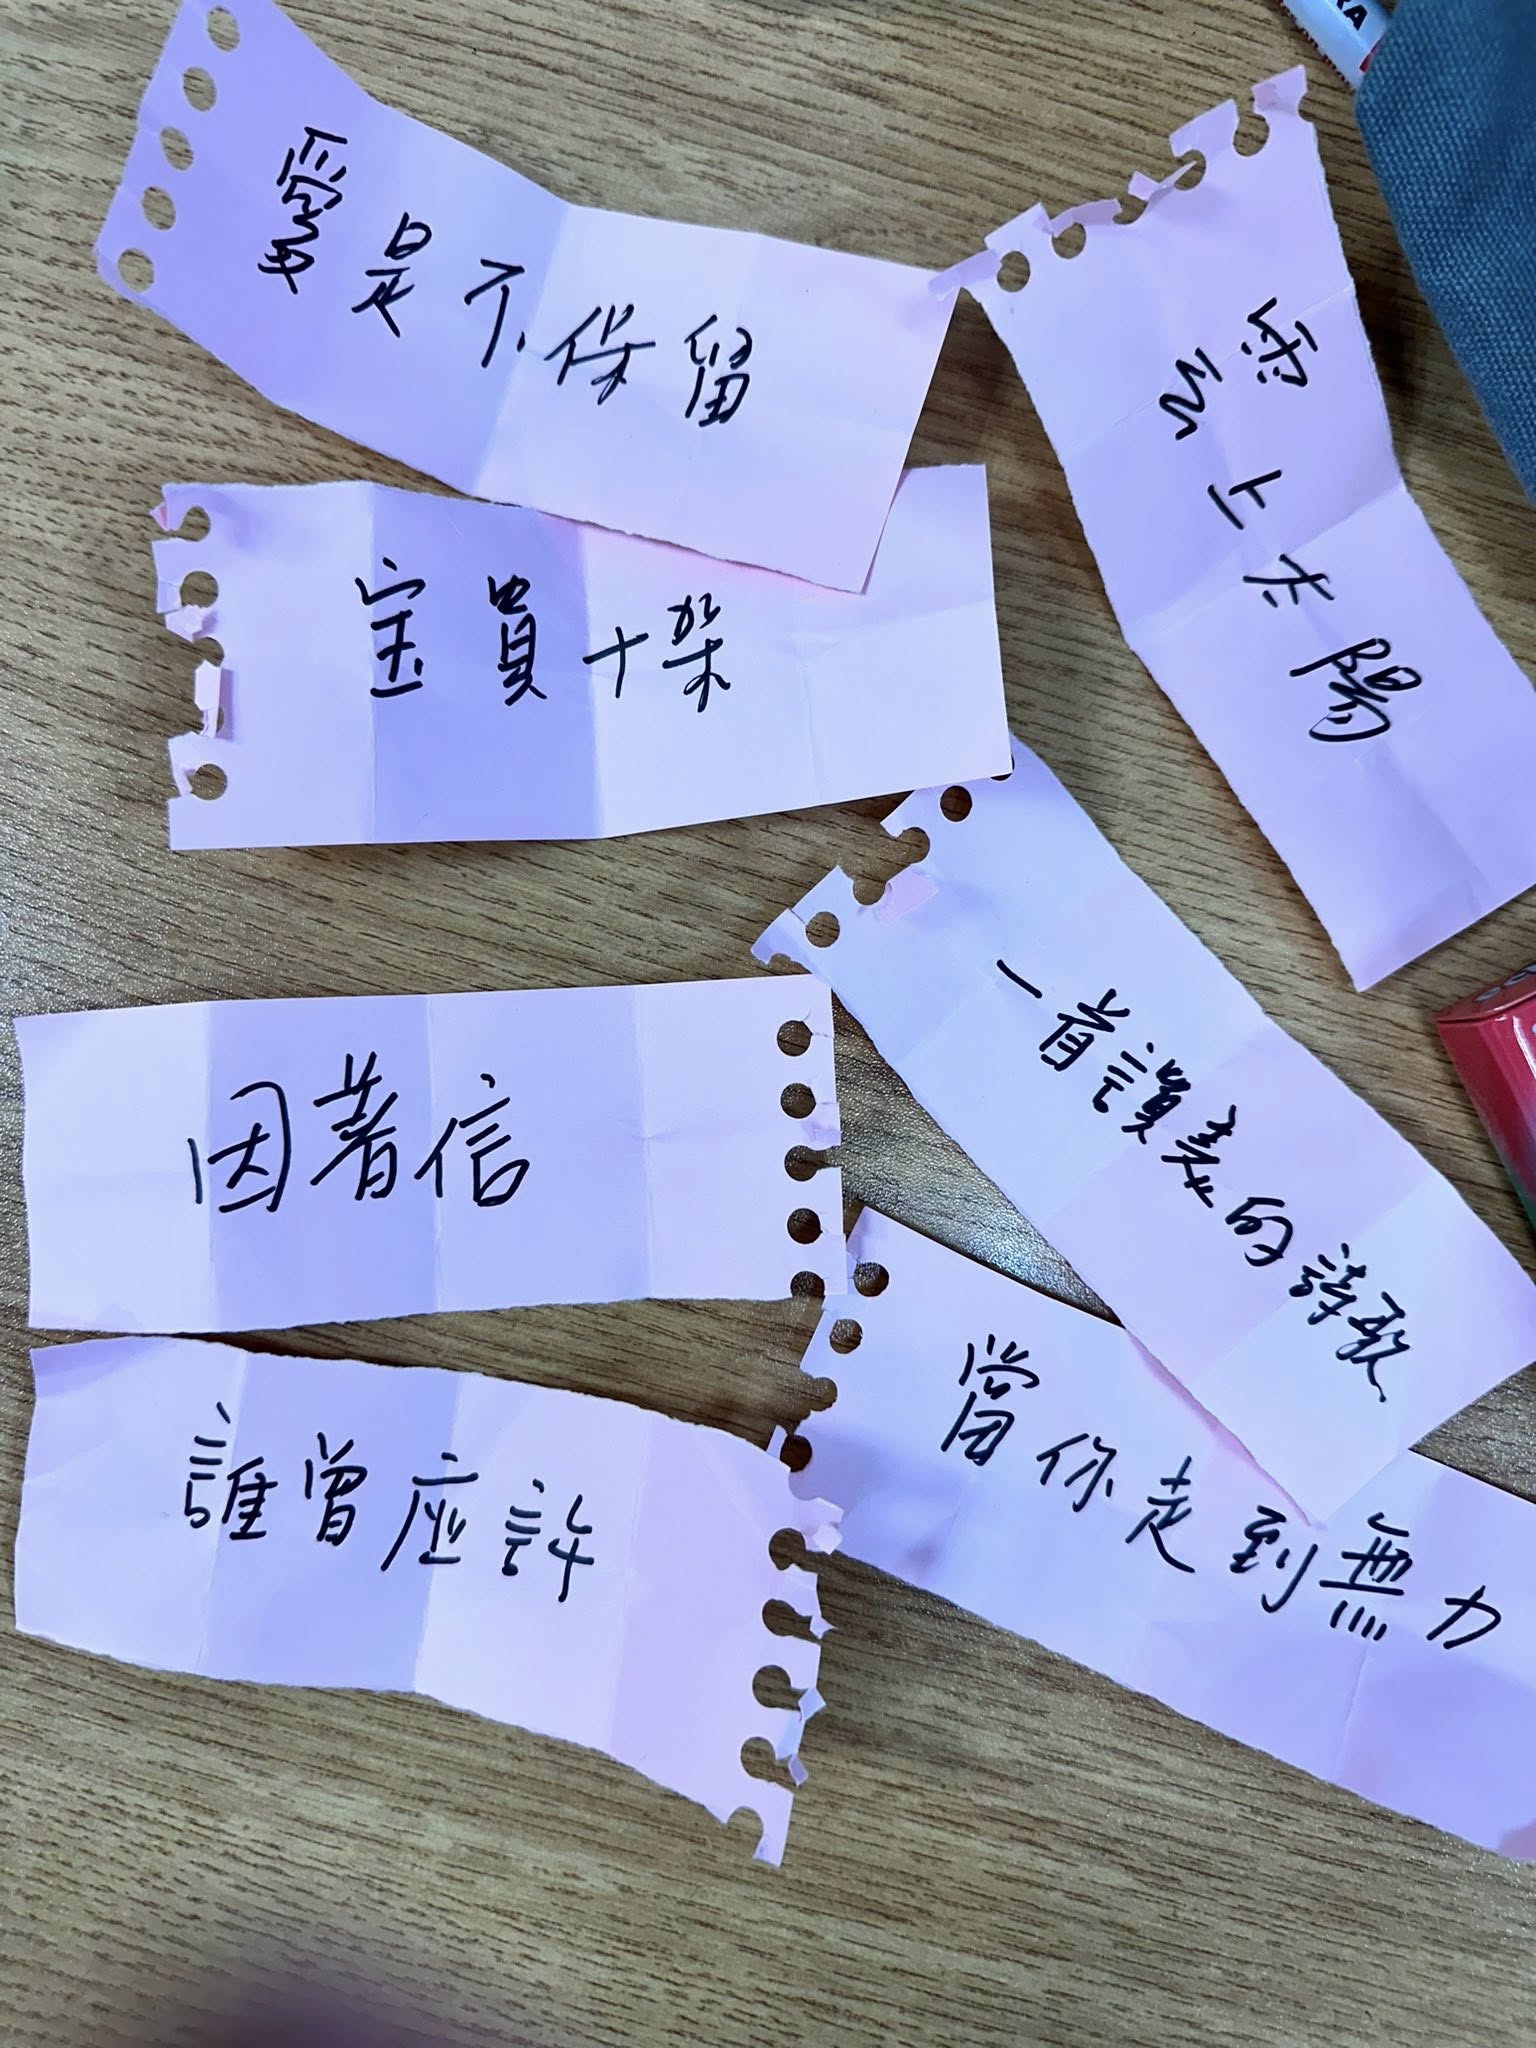 愛是不保留
雲上太陽
宝貴十架
一首讚美的詩歌
因著信
當你走到無力
誰曾應許